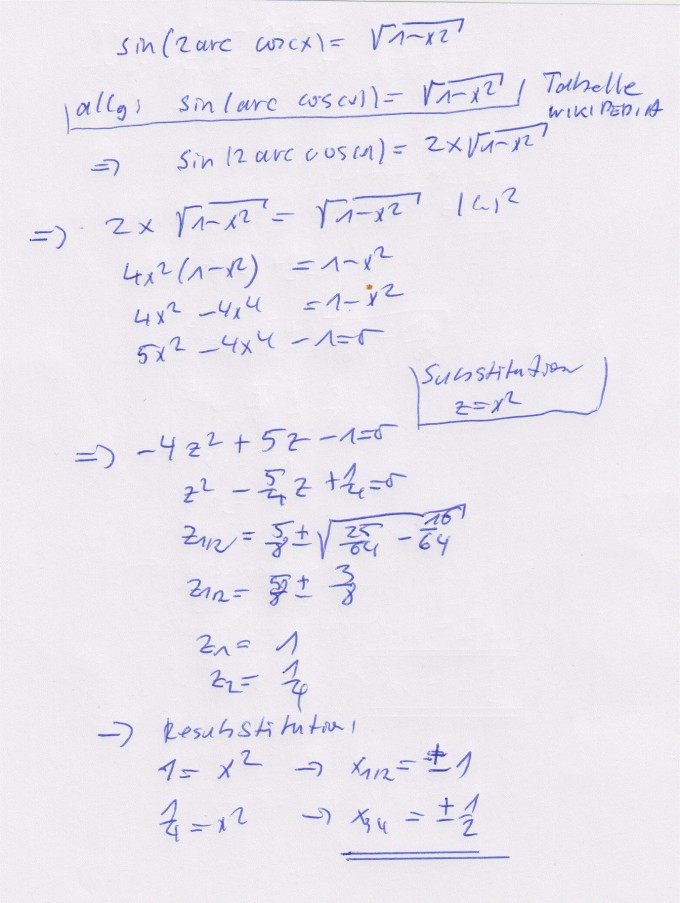 sin(2 arc cos(x) = √1-x²
allg: sin(arc cos(x)) = √1-x² Tabelle WIKIPEDIA
=> sin(2 arc cos(x) = 2x√1-x²
=> 2x √1-x² = √1-x² |( )²
4x²(1-x²) = 1-x²
4x² - 4x⁴ = 1-x²
5x² - 4x⁴ - 1 = 0
Substitution
z = x²
=> -4z² + 5z - 1 = 0
z² - 5/4 z + 1/4 = 0
z1/2 = 5/8 ± √25/64 - 16/64
z1/2 = 5/8 ± 3/8
z1 = 1
z2 = 1/4
-> Resubstitution:
1 = x² -> x1/2 = ± 1
1/4 = x² -> x34 = ± 1/2